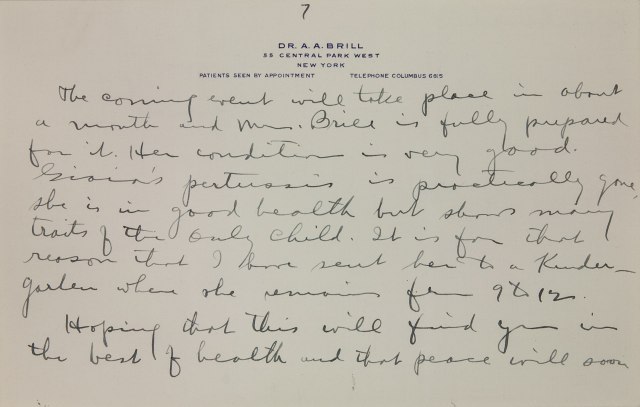 7
DR. A. A. BRILL
55 CENTRAL PARK WEST
NEW YORK
PATIENTS SEEN BY APPOINTMENT TELEPHONE COLUMBUS 6615
The coming event will take place in about
a month and Mrs. Brill is fully prepared
for it. Her condition is very good.
Gioia's pertussis is practically gone,
she is in good health but shows many
traits of the only child. It is for that
reason that I have sent her to a Kinder-
garten where she remains from 9 to 12.
Hoping that this will find you in
the best of health and that peace will soon